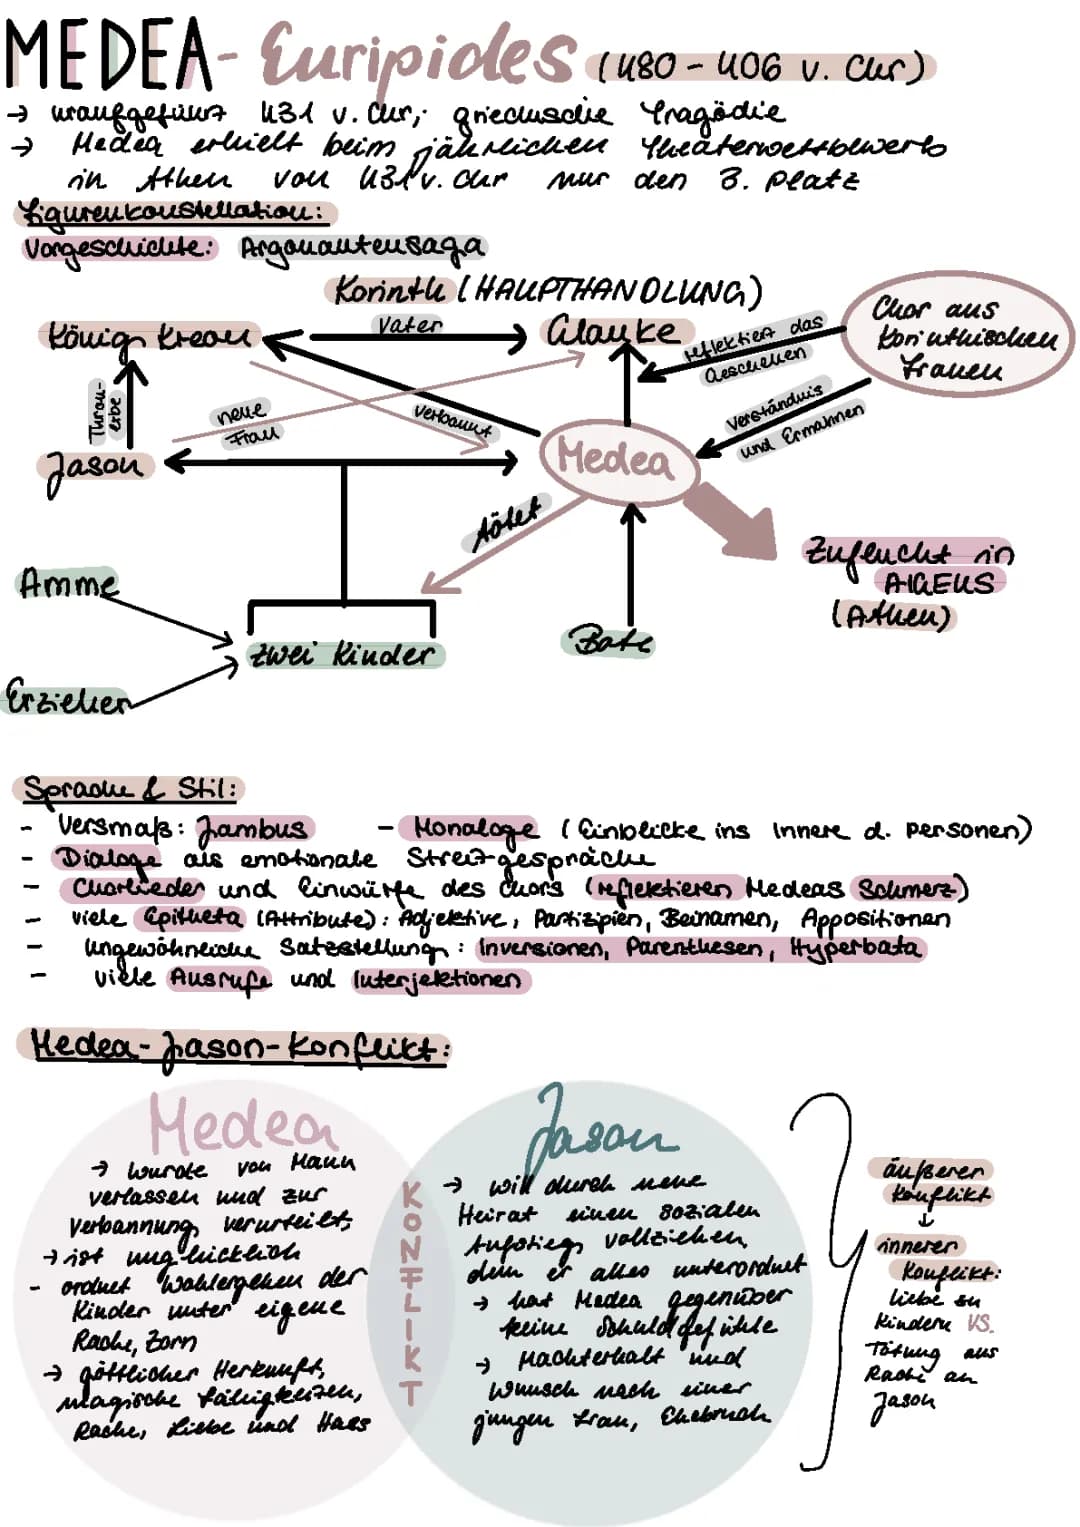 MEDEA - Euripides (480 - 406 v. Chr)
→ uraufgeführt 431 v. Chr, griechische Tragödie
→ Medea erhielt beim jährlichen Theaterwettbewerb
in Athen von 431 v. Chr nur den 3. Platz
Figurenkonstellation:
Vorgeschichte: Argonautensaga
Korinth (HAUPTHANDLUNG)
König Kreon
Vater
Glauke
reflektiert das
Geschehen
Chor aus
korinthischen
Frauen
Thron-
erbe
neue
Frau
verbannt
Verständnis
und Ermahnen
Jason
Medea
tötet
Zuflucht in
AIGEUS
(Athen)
Amme
zwei Kinder
Bote
Erzieher
Sprache & Stil:
- Versmaß: Jambus - Monologe (Einblicke ins Innere d. Personen)
- Dialoge als emotionale Streitgespräche
- Chorlieder und Einwürfe des Chors (reflektieren Medeas Schmerz)
- viele Epitheta (Attribute): Adjektive, Partizipien, Beinamen, Appositionen
- ungewöhnliche Satzstellung: Inversionen, Parenthesen, Hyperbata
- viele Ausrufe und Interjektionen
Medea-Jason-Konflikt:
Medea
→ wurde von Mann
verlassen und zur
Verbannung verurteilt,
→ ist unglücklich
- ordnet Wohlergehen der
Kinder unter eigene
Rache, Zorn
→ göttlicher Herkunft,
magische Fähigkeiten,
Rache, Liebe und Hass
KONFLIKT
Jason
→ will durch neue
Heirat einen sozialen
Aufstieg vollziehen,
dem er alles unterordnet
→ hat Medea gegenüber
keine Schuldgefühle
→ Machterhalt und
Wunsch nach einer
jungen Frau, Ehebruch
äußerer
Konflikt
↓
innerer
Konflikt:
Liebe zu
Kindern VS.
Tötung aus
Rache an
Jason